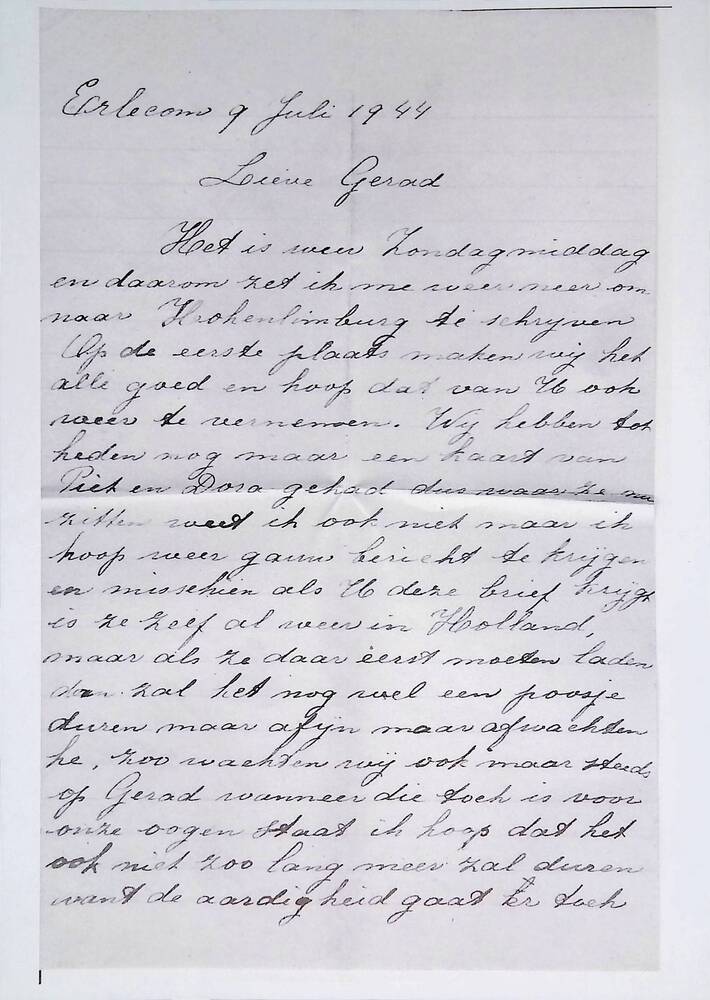 Erlecom 9 Juli 1944
Lieve Gerad
Het is weer Zondagmiddag
en daarom zet ik me weer neer om
naar Hohenlimburg te schrijven
Op de eerste plaats maken wij het
alle goed en hoop dat van U ook
weer te vernemen. Wij hebben tot
heden nog maar een kaart van
Piet en Dora gehad dus waar ze nu
zitten weet ik ook niet maar ik
hoop weer gauw bericht te krijgen
en misschien als U deze brief krijgt
is ze zelf al weer in Holland,
maar als ze daar eerst moeten laden
dan zal het nog wel een poosje
duren maar afijn maar afwachten
he, zoo wachten wij ook maar steeds
op Gerad wanneer die toch is voor
onze oogen staat ik hoop dat het
ook niet zoo lang meer zal duren
want de aardigheid gaat Er toch